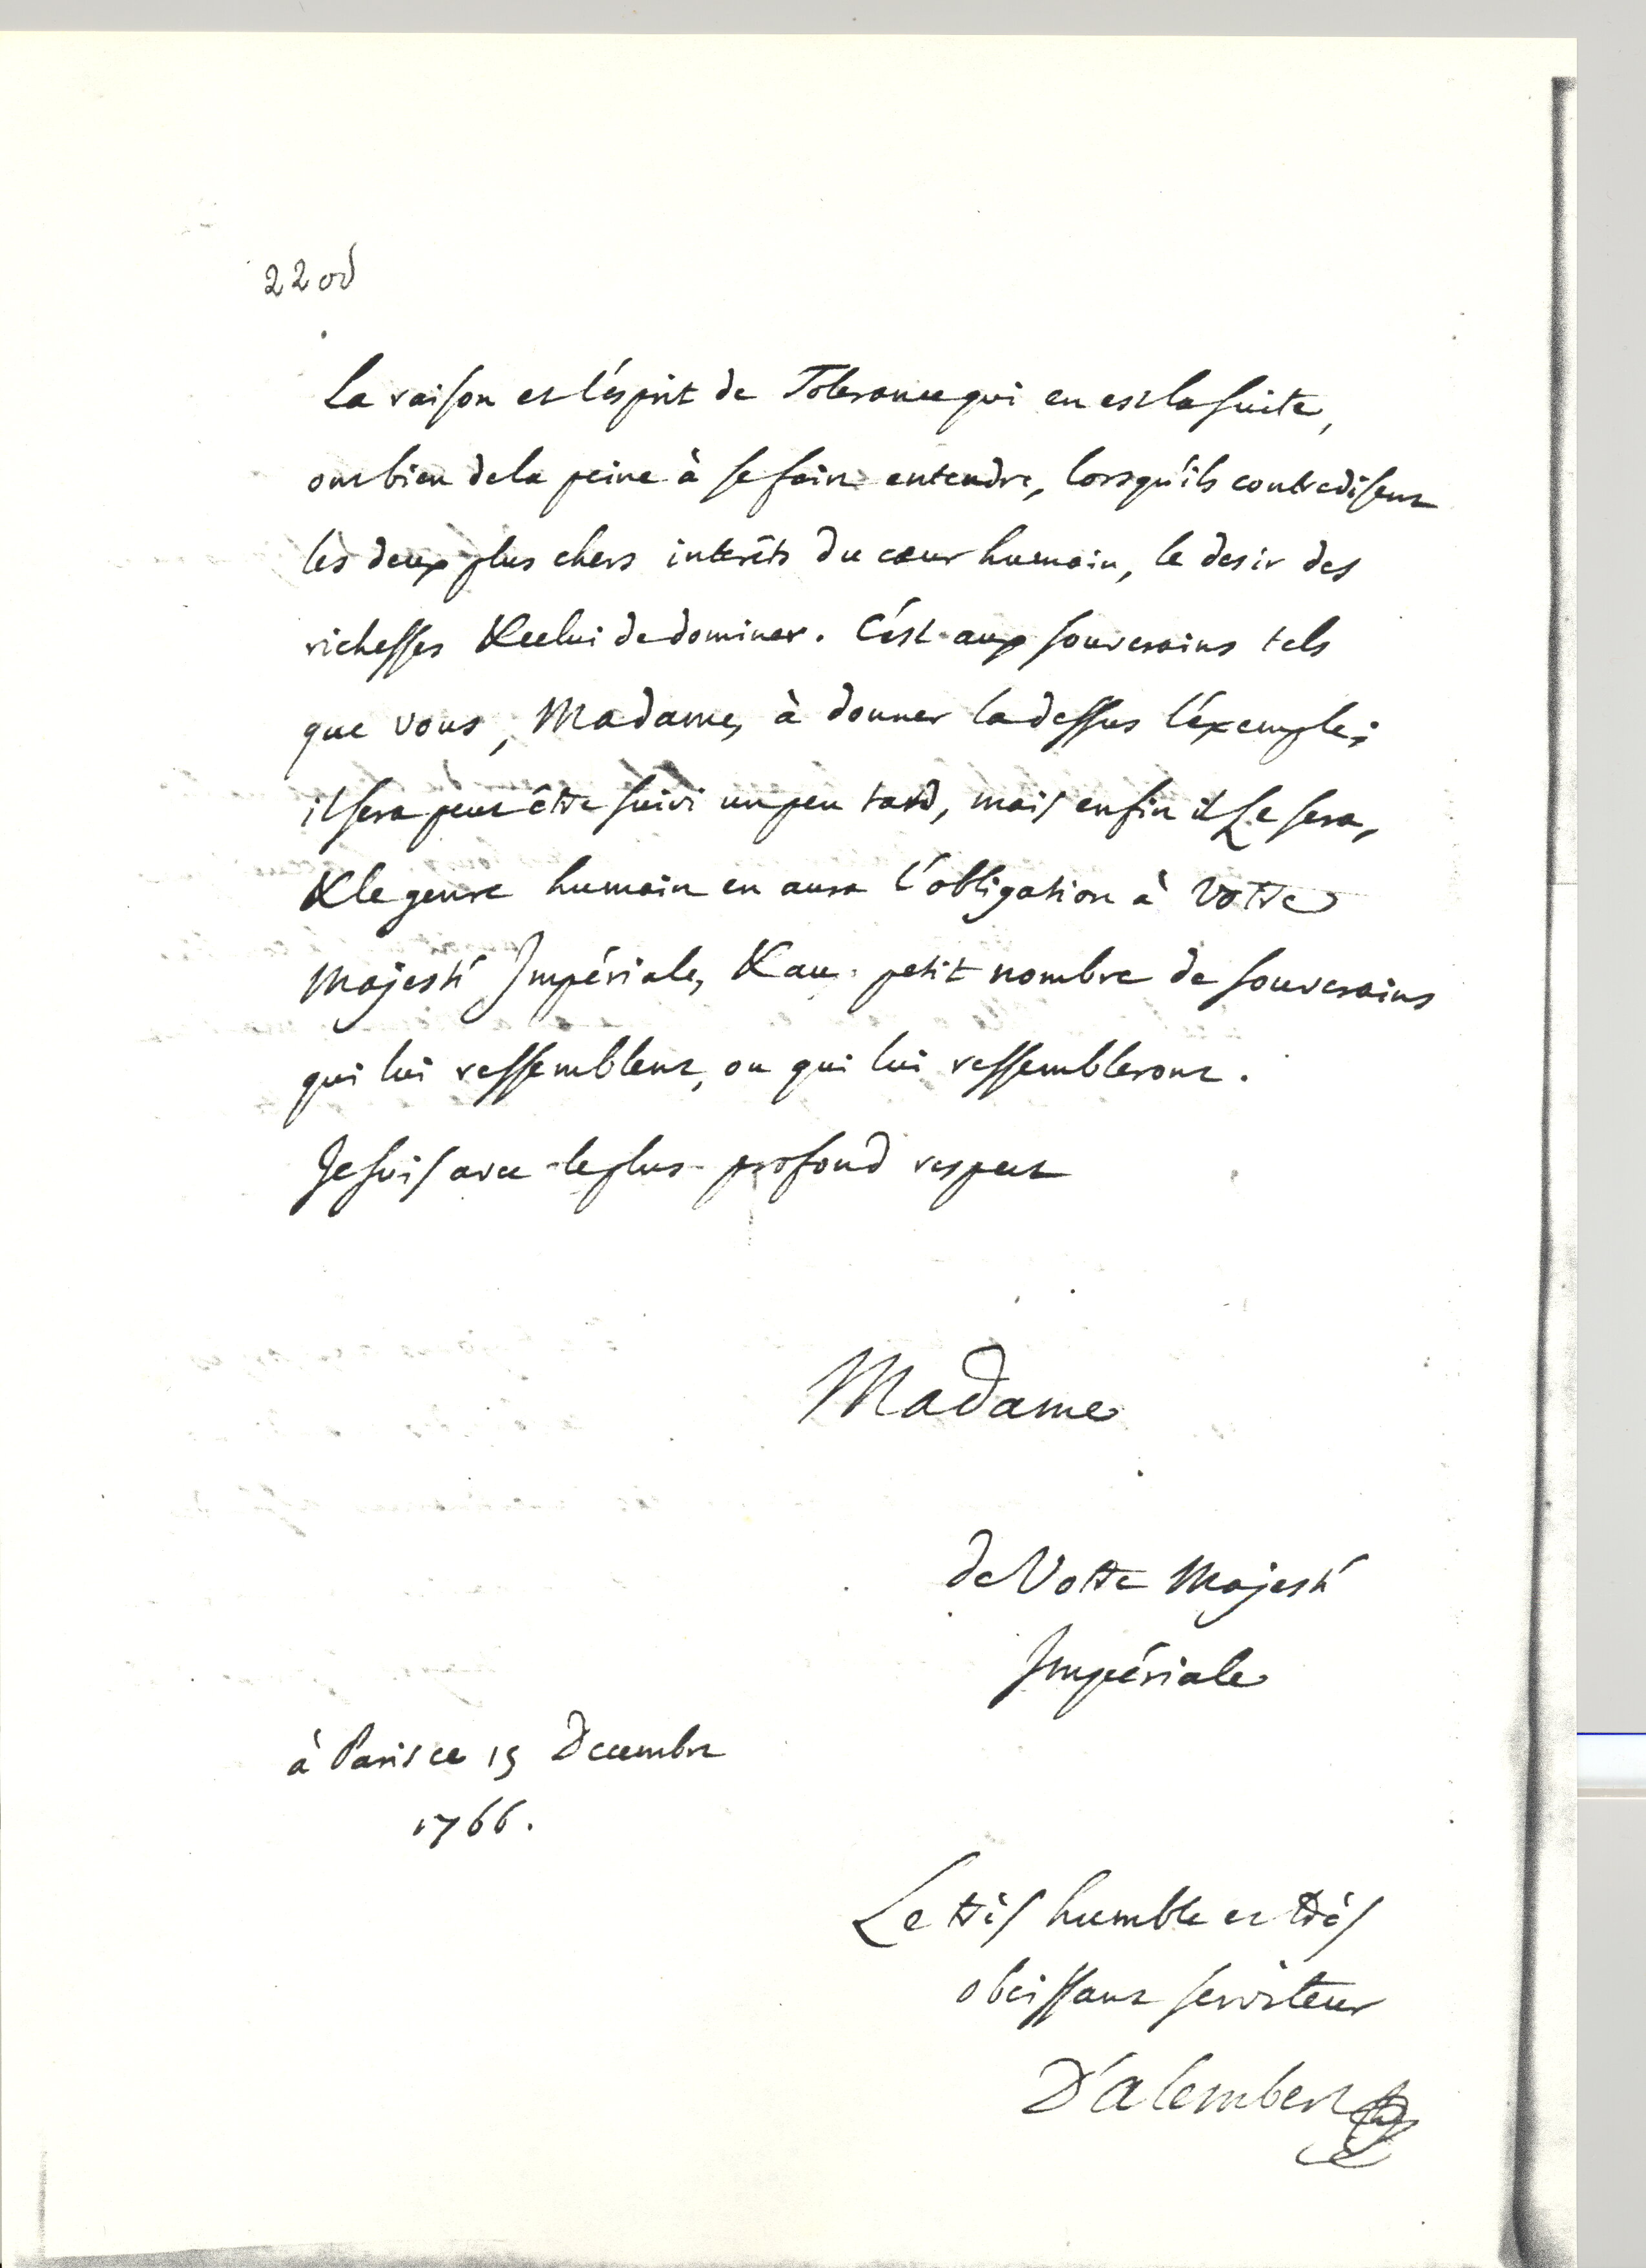 22 od
La raison et l'ésprit de Tolerance qui en est la suite,
ont bien de la peine à se faire entendre, lorsqu'ils contredisent
les deux plus chers interêts du cœur humain, le desir des
richesses & celui de dominer. C'ést aux souverains tels
que vous, Madame, à donner la dessus l'éxemple;
il sera peut être suivi un peu tard, mais enfin il Le sera,
& le genre humain en aura l'obligation à Votre
Majesté Impériale, & au petit nombre de souverains
qui lui ressemblent, ou qui lui ressembleront.
Je suis avec le plus profond respect
Madame
de Votre Majesté
Impériale
à Paris ce 15 Decembre
1766.
Le très humble et très
obeissant serviteur
D'alembert